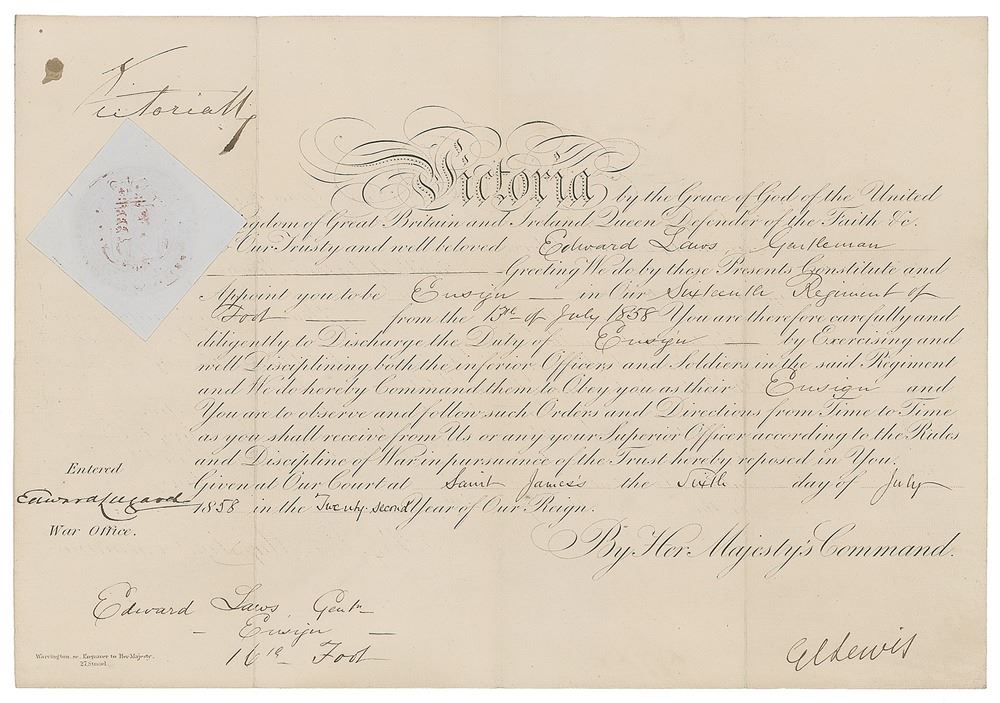 Victoria R
Victoria by the Grace of God of the United
Kingdom of Great Britain and Ireland Queen Defender of the Faith &c.
Our Trusty and well beloved Edward Laws Gentleman
Greeting We do by these Presents Constitute and
Appoint you to be Ensign in Our Sixteenth Regiment of
Foot from the 13th of July 1858 You are therefore carefully and
diligently to Discharge the Duty of Ensign by Exercising and
well Disciplining both the inferior Officers and Soldiers in the said Regiment
and We do hereby Command them to Obey you as their Ensign and
You are to observe and follow such Orders and Directions from Time to Time
as you shall receive from Us or any your Superior Officer according to the Rules
and Discipline of War in pursuance of the Trust hereby reposed in You.
Given at Our Court at Saint James's the Sixth day of July
1858 in the Twenty second Year of Our Reign.
By Her Majesty's Command.
Entered
Edward Lugard
War Office.
Edward Laws Gentn
Ensign
16th Foot
Warrington, sc. Engraver to Her Majesty,
27, Strand
G C Lewis